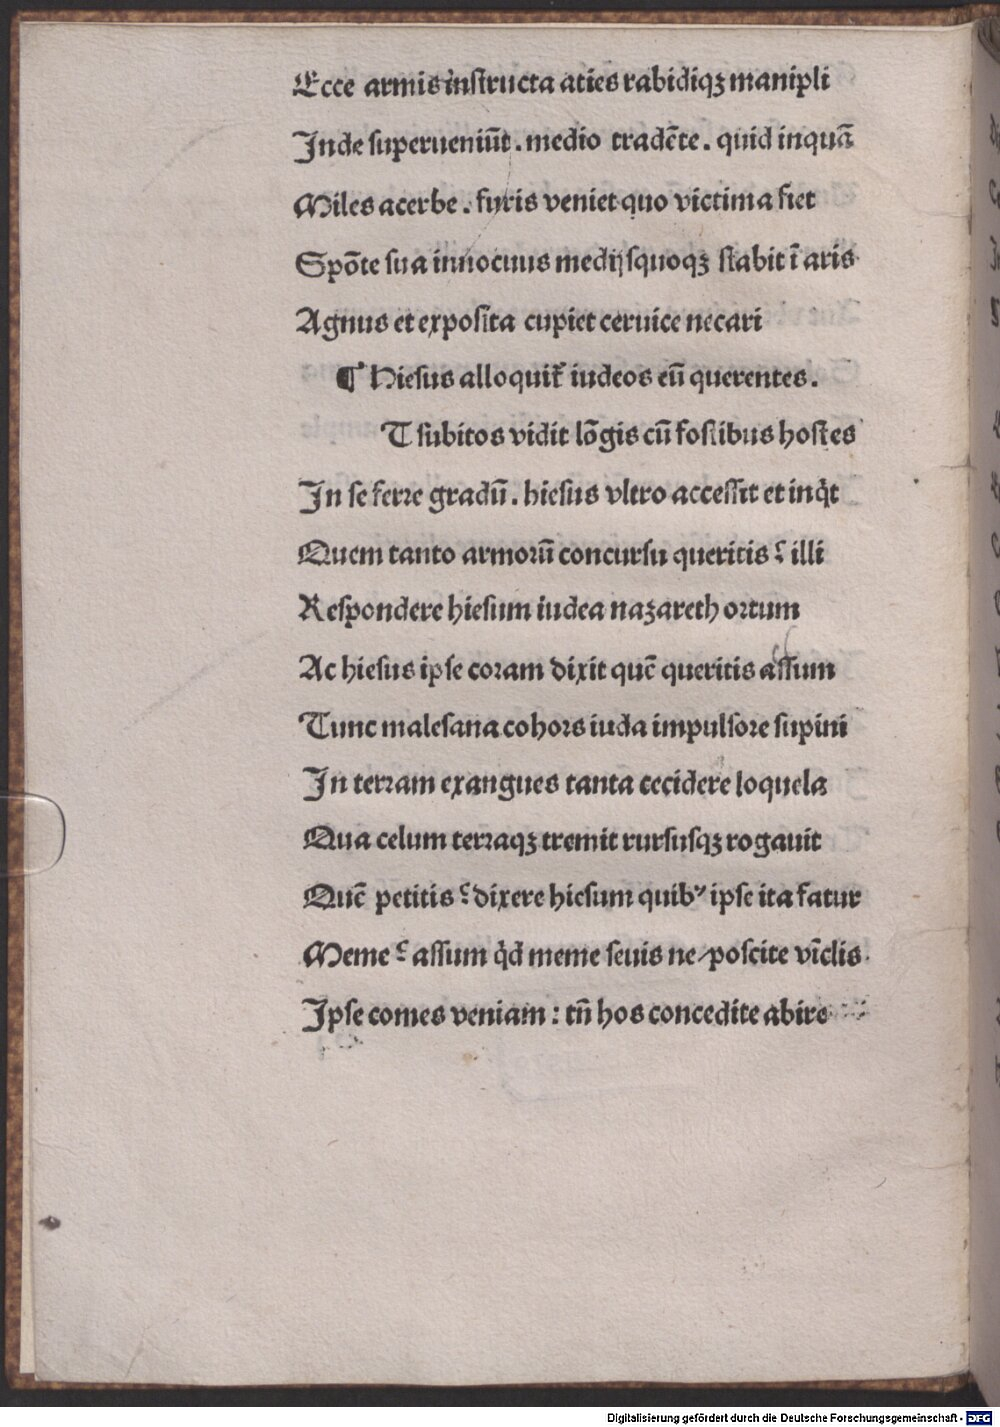 Ecce armis instructa aties rabidiqꝫ manipli
Inde superueniūt . medio tradēte . quid inquā
Miles acerbe . furis veniet quo victima fiet
Spōte sua innocuus medijsquoqꝫ stabit ī aris
Agnus et exposita cupiet ceruice necari
¶ Hiesus alloquit̄ iudeos eū querentes .
T subitos vidit lōgis cū fostibus hostes
In se ferre gradū . hiesus vltro accessit et inq̇t
Quem tanto armorū concursu queritis ? illi
Respondere hiesum iudea nazareth ortum
Ac hiesus ipse coram dixit quē queritis assum
Tunc malesana cohors iuda impulsore supini
In terram exangues tanta cecidere loquela
Qua celum terraqꝫ tremit rursusqꝫ rogauit
Quē petitis ? dixere hiesum quibꝰ ipse ita fatur
Meme ? assum q̇d meme seuis ne poscite vīclis
Ipse comes veniam : tn̄ hos concedite abire
Digitalisierung gefördert durch die Deutsche Forschungsgemeinschaft - DFG